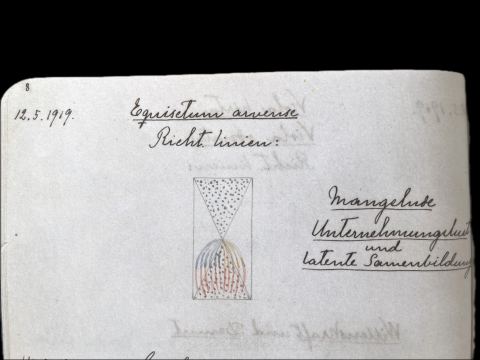 8
12.5.1919.
Equisetum arvense
Richt. linien:
Mangelnde
Unternehmungslust
und
latente Samenbildung